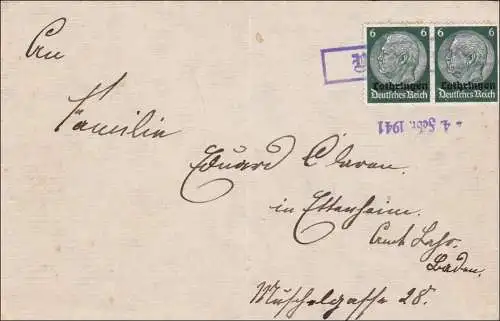 6 6 6 6
Lothringen Lothringen
Deutsches Reich Deutsches Reich
4. Febr. 1941
An
Familie
Eduard Claren.
in Ettenheim.
Amt Lahr.
Baden.
Muschelgasse 28.